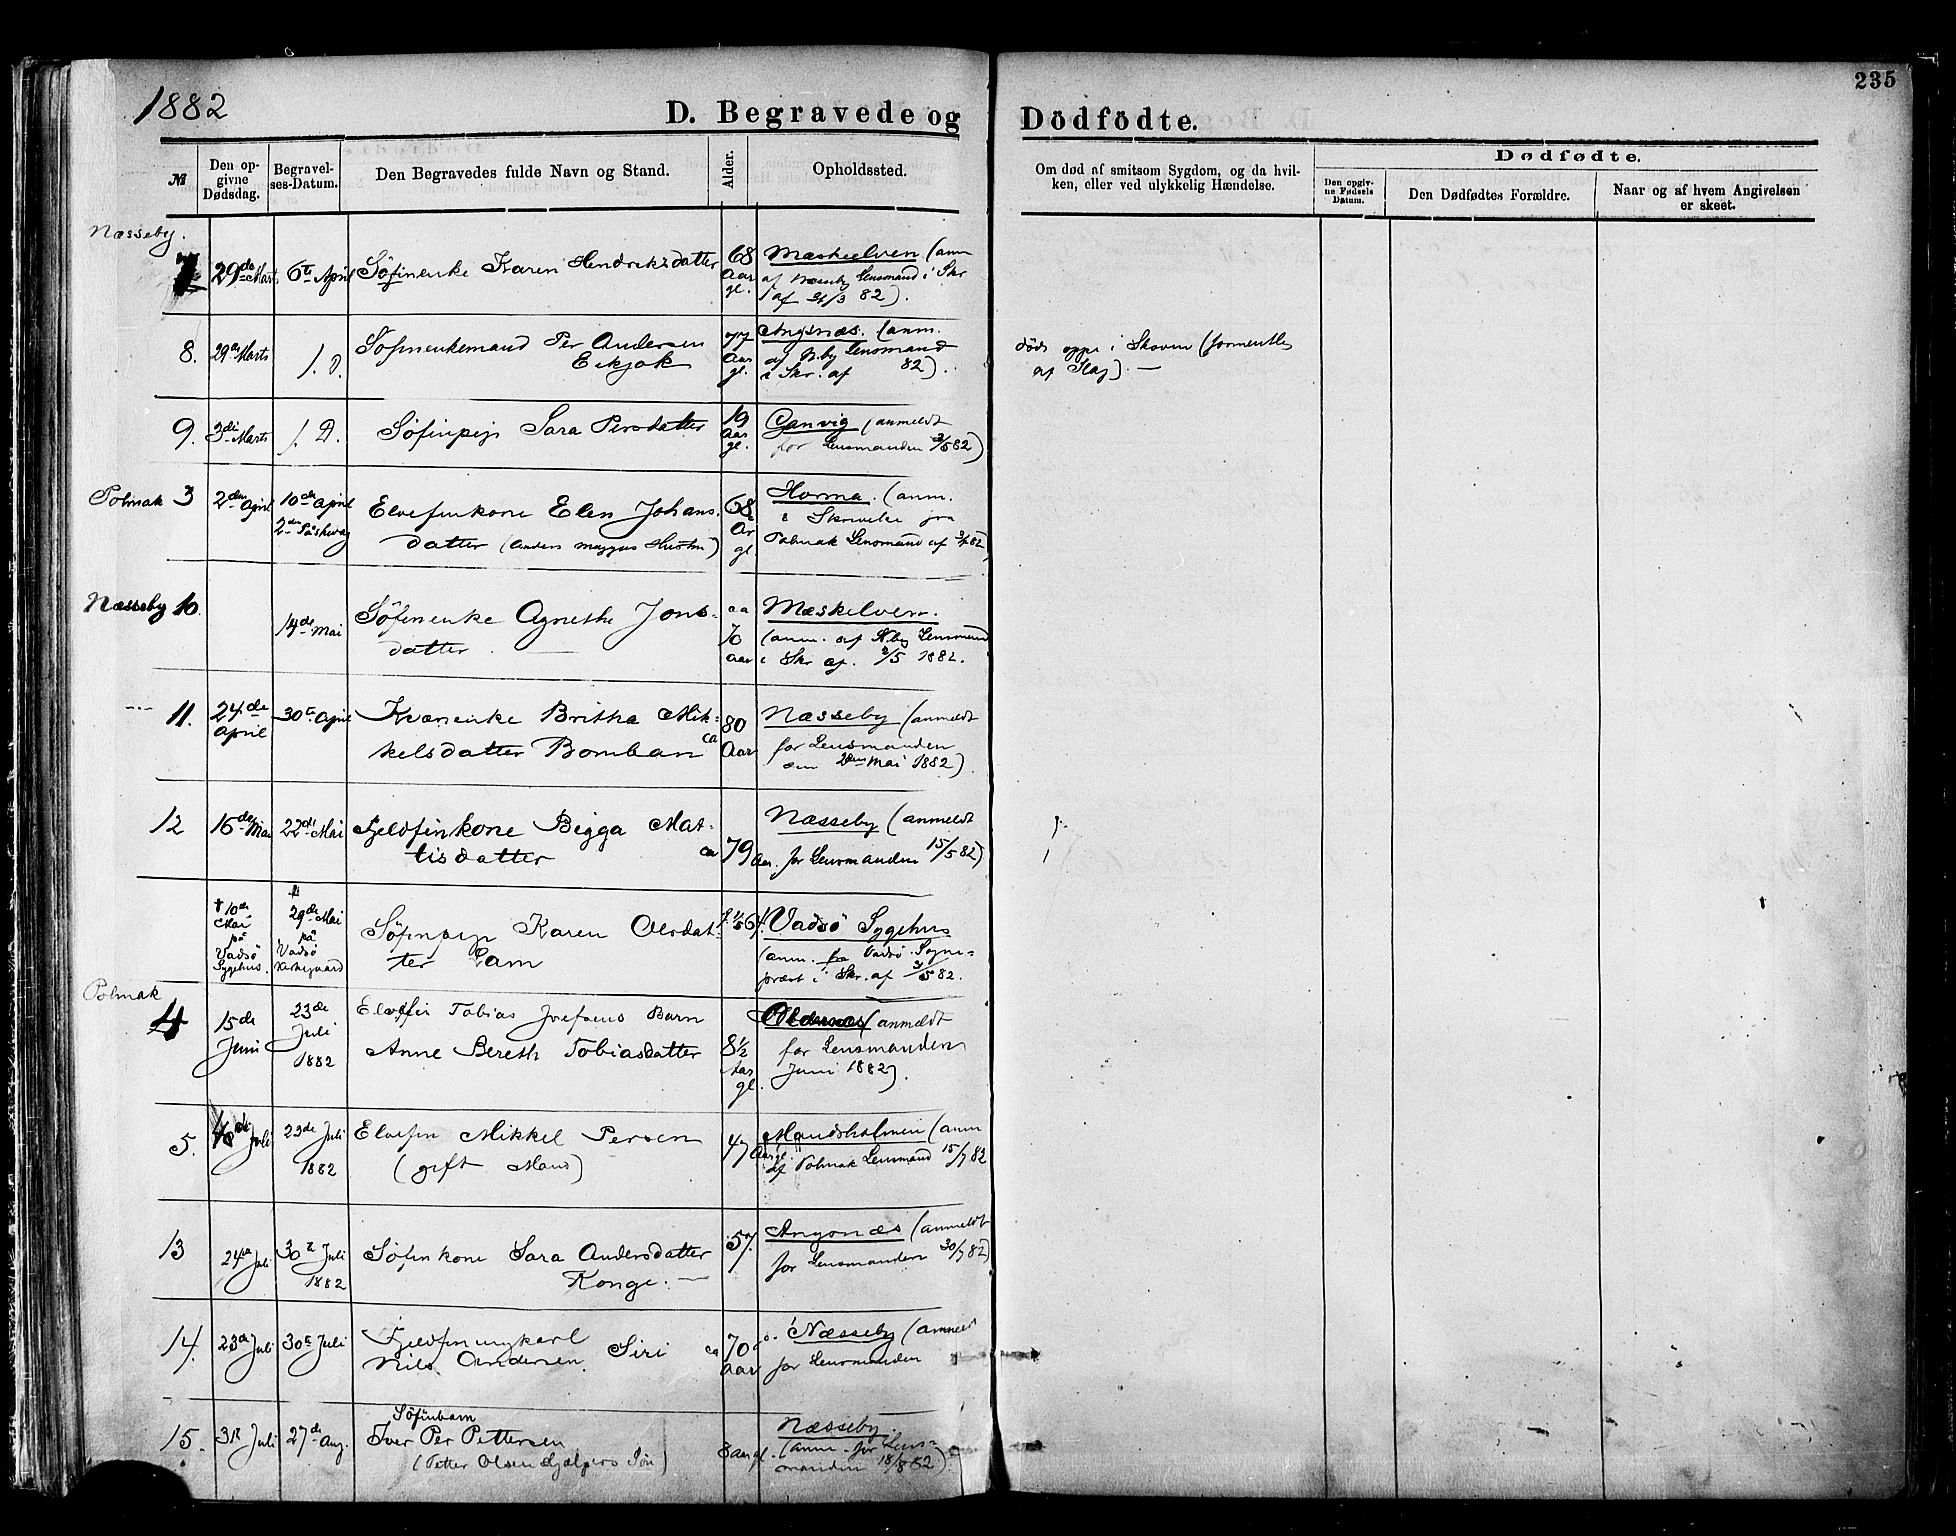 1882
D. Begravede og Dödfödte.
235
№
Den opgivne Dødsdag.
Begravelses-Datum.
Den Begravedes fulde Navn og Stand.
Alder.
Opholdssted.
Om død af smitsom Sygdom, og da hvilken, eller ved ulykkelig Hændelse.
Dødfødte.
Den opgivne Fødsels Datum.
Den Dødfødtes Forældre.
Naar og af hvem Angivelsen er skeet.
Næsseby.
7 29de Marts 6te April Söfinenke Karen Hendriksdatter 68 Aar gl. Mæskeelven (anm
af Næsseby Lensmand i Skr
af 31/3 82).
8. 29de Marts /. D. Söfinenkemand Per Andersen 77 Aar gl. Angsnæs. (anm.
Eikjok af N.by Lensmand
i Skr. af 82).
död oppe i Skoven (formentlig
af Slag). —
9. 3di Marts /. D. Söfinpige Sara Persdatter 19 Aar gl. Ganvig (anmeldt
for Lensmanden 3/5 82)
Polmak 3 2den April 10de April Elvefinkone Elen Johans- 68 Ar gl Horma. (anm.
2den Påskedag datter (Anders Hustru) i Skrivelse fra
Polmak Lensmand af 82
Næsseby 10. 14de Mai Söfinenke Agnethe Jons- ca 70 aar Mæskelven.
datter. (anm. af N.by Lensmand
i Skr af. 2/5 1882.
11. 24de April 30te April Kvænenke Britha Mik- 80 Aar Næsseby (anmeldt
kelsdatter Bomban ca for Lensmanden
den 2den Mai 1882)
12 16de Mai 22de Mai Fjeldfinkone Bigga Mat- Næsseby (anmeldt
tisdatter ca 79 Aar. for Lensmanden 15/5 82)
† 10de Mai på Vadsö Sygehus. 29de Mai på Vadsö Kirkegaard Söfinpige Karen Olsdat- Vadsö Sygehus
ter Lam (anm. fra Vadsö Sogne-
præst i Skr. af 3/5 82.
Polmak
4 15de Juni 23de Juli 1882 Elvefin Tobias Josefsens Barn (anmeldt
Anne Bereth Tobiasdatter 8½ Aar gl. for Lensmanden
Juni 1882).
5. Juli 23de Juli 1882 Elvefin Mikkel Persen 47 Aar gl. Mandsholmen (anm
(gift Mand) af Polmak Lensmand 15/7 82
13 24de Juli 30te Juli 1882 Söfinkone Sara Andersdatter 57 Angsnæs (anmeldt
Konge. — for Lensmanden 30/7 82)
14. 23de Juli 30te Juli Fjeldfinungkarl ca 70 Aar Næsseby (anmeldt
Nils Andersen Siri for Lensmanden
15. 31te Juli 27de Aug. Söfinbarn
Iver Per Pettersen 8 aar gl. Næsseby.
(Petter Olsen Sön) (anm. for Lens-
manden 18/8 82)